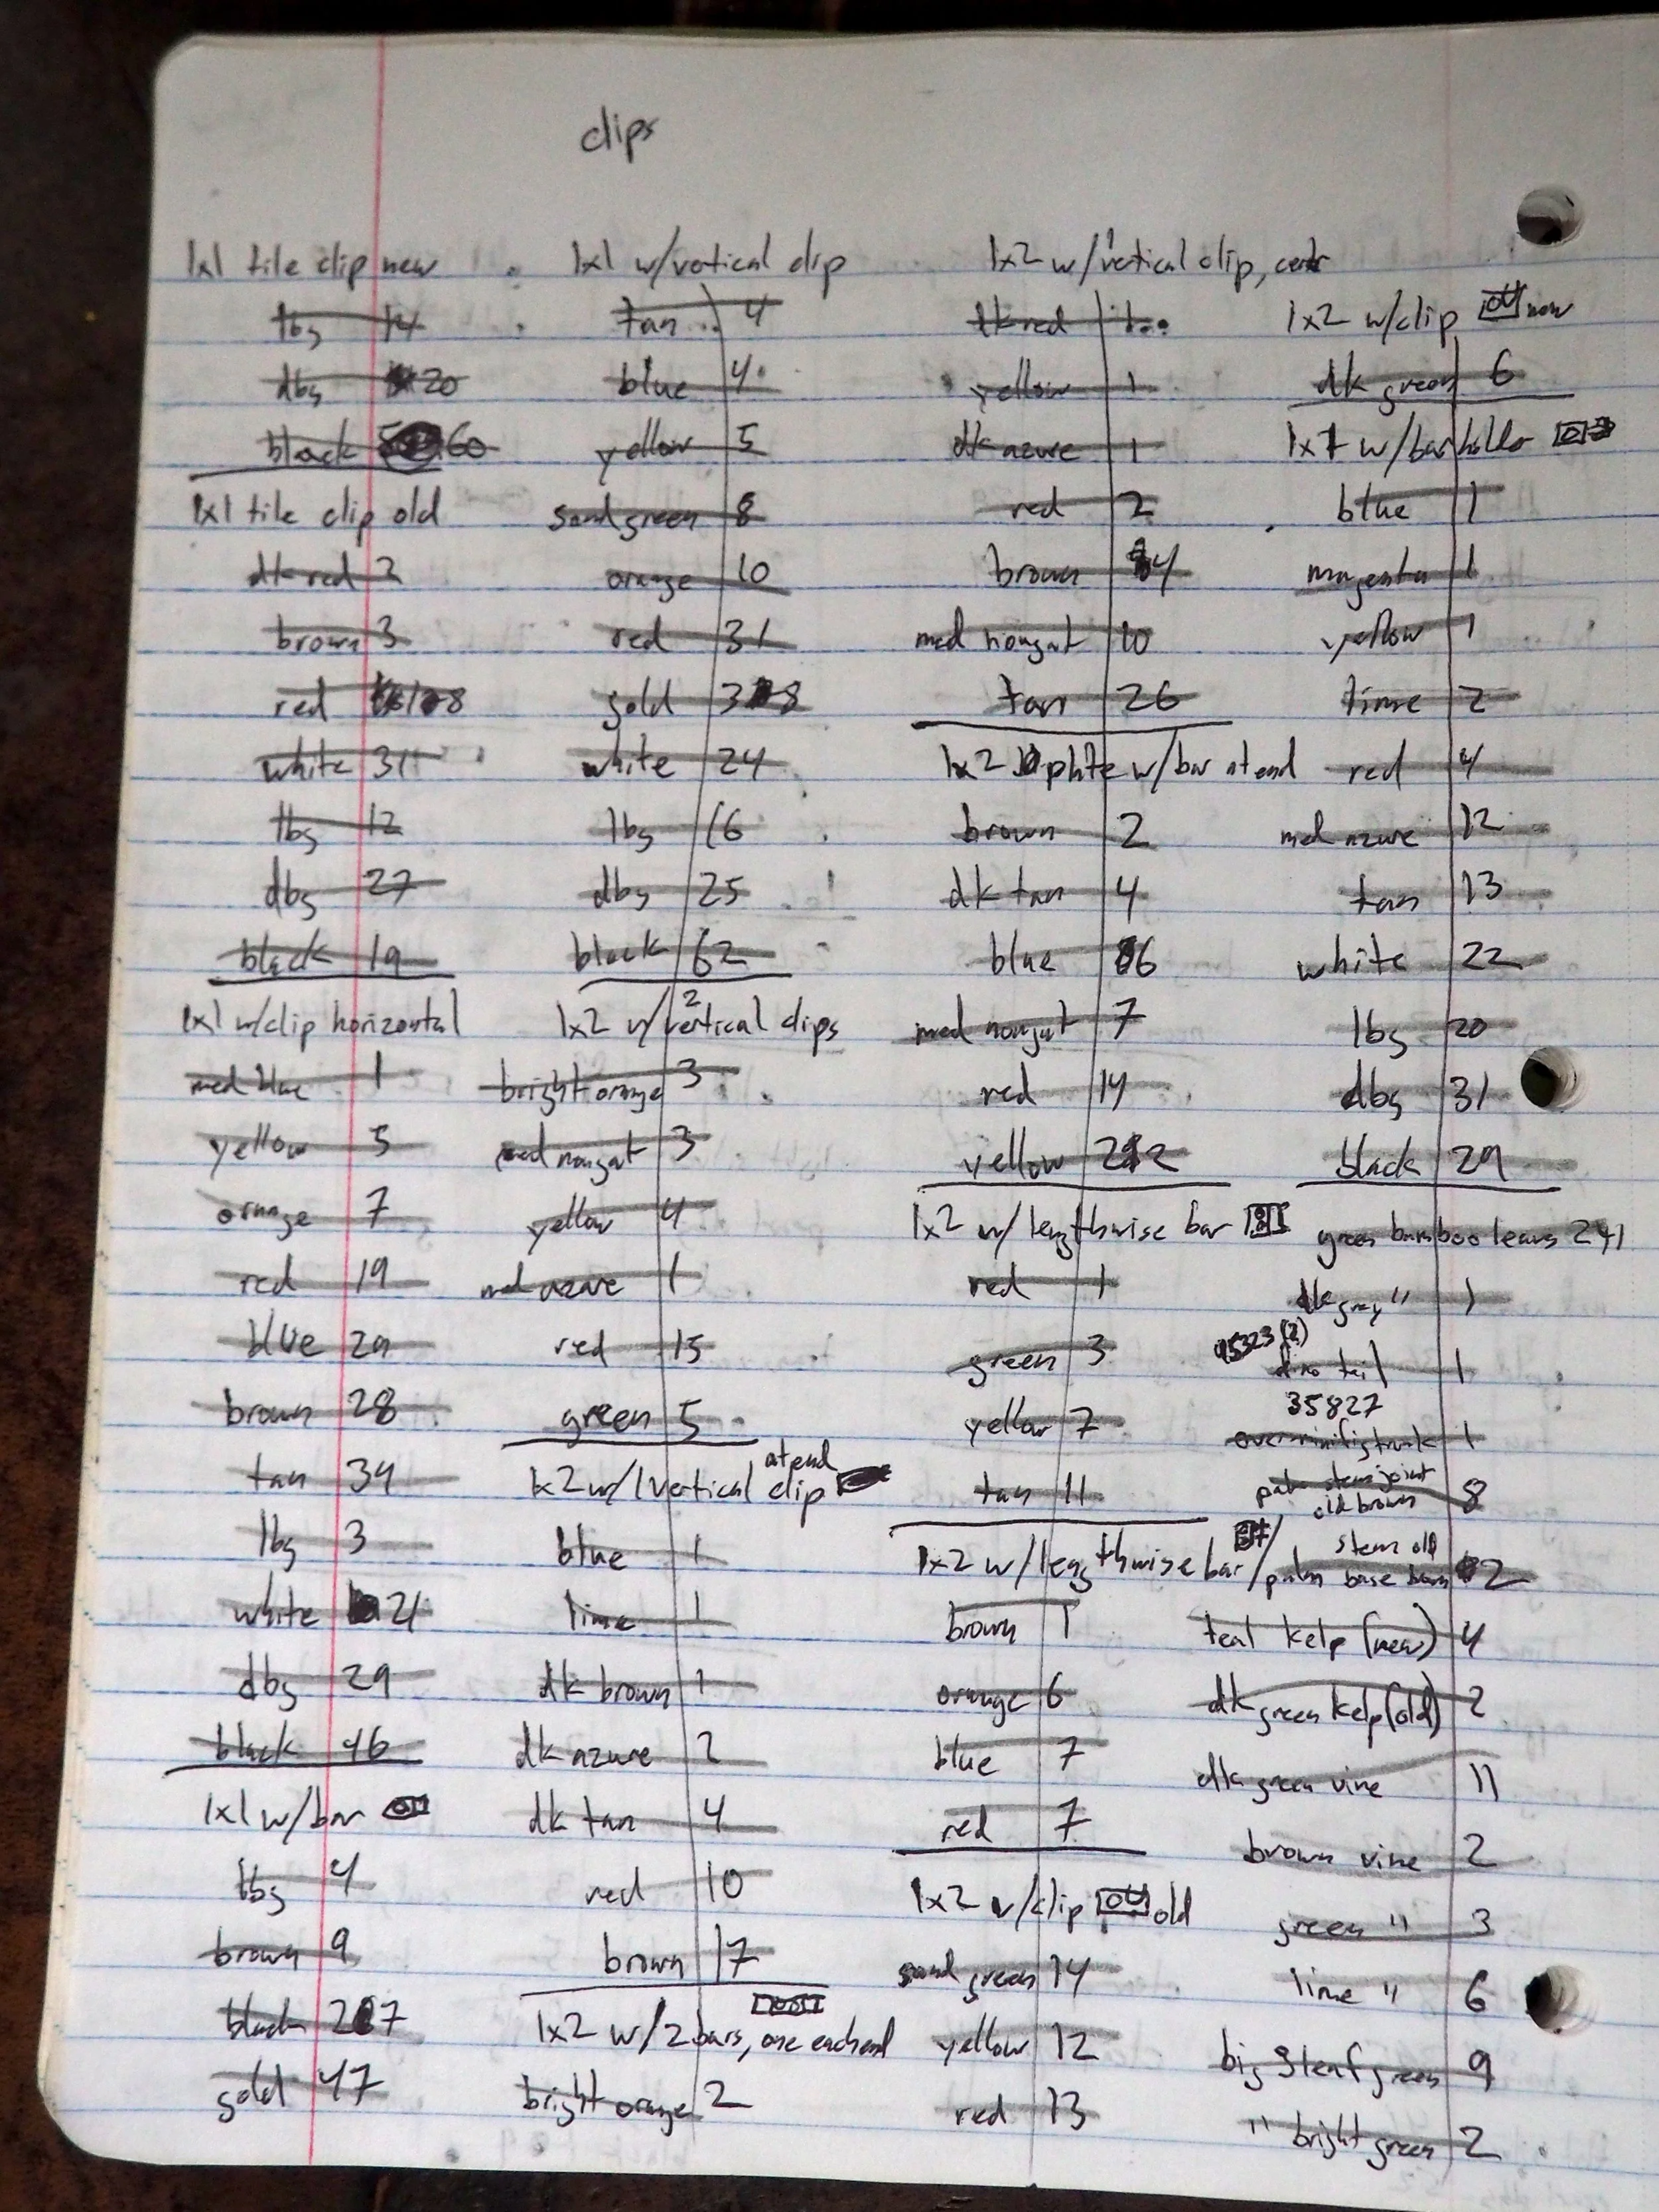 clips
1x1 tile clip new
lbg 14
dbg 20
black 60
1x1 tile clip old
dk red 2
brown 3
red 8
white 31
lbg 12
dbg 27
black 19
1x1 w/clip horizontal
med blue 1
yellow 5
orange 7
red 19
blue 29
brown 28
tan 34
lbg 3
white 21
dbg 29
black 46
1x1 w/bar
lbg 4
brown 9
black 27
gold 47
1x1 w/vertical clip
tan 4
blue 4
yellow 5
sand green 8
orange 10
red 31
gold 38
white 24
lbg 16
dbg 25
black 62
1x2 w/2 vertical clips
bright orange 3
med nougat 3
yellow 4
med azure 1
red 15
green 5
1x2 w/1 vertical clip at end
blue 1
lime 1
dk brown 1
dk azure 2
dk tan 4
red 10
brown 17
1x2 w/2 bars, one each end
bright orange 2
1x2 w/1 vertical clip, cent
dk red 1
yellow 1
dk azure 1
red 2
brown 4
med nougat 10
tan 26
1x2 plate w/bar at end
brown 2
dk tan 4
blue 6
med nougat 7
red 14
yellow 22
1x2 w/lengthwise bar
red 1
green 3
yellow 7
tan 11
1x2 w/lengthwise bar
brown 1
orange 6
blue 7
red 7
1x2 w/clip old
sand green 14
yellow 12
red 13
1x2 w/clip new
dk green 6
1x1 w/bar
blue 1
magenta 1
yellow 1
lime 2
red 4
med azure 12
tan 13
white 22
lbg 20
dbg 31
black 29
green bamboo leaves 241
dk gray " 1
(2)
dino tail 1
35827
1
palm stem joint old brown 8
palm base brown stem old 2
teal kelp (new) 4
dk green kelp (old) 2
dk green vine 11
brown vine 2
green " 3
lime " 6
big 3 leaf green 9
" bright green 2